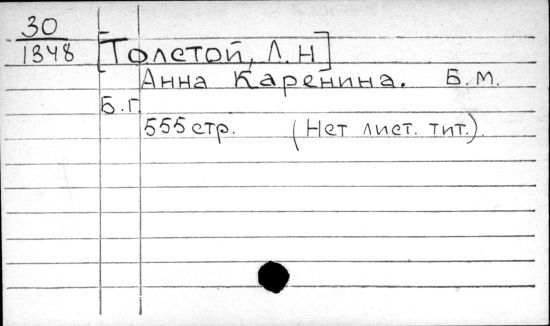 30
1348 [Толстой, Л. Н]
Анна Каренина. Б. м.
Б. г.
555 стр. (Нет лист. тит.).